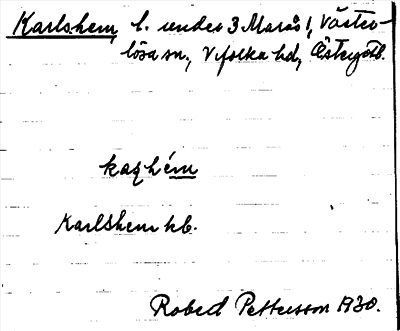 Karlshem, l. under 3 Marås 1, Väster-
lösa sn, Vifolka hd, Östergötl.
kaɽhém
Karlshem hb.
Robert Pettersson 1930.